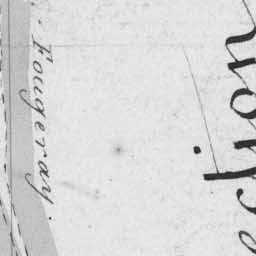 Fougeray.
ction